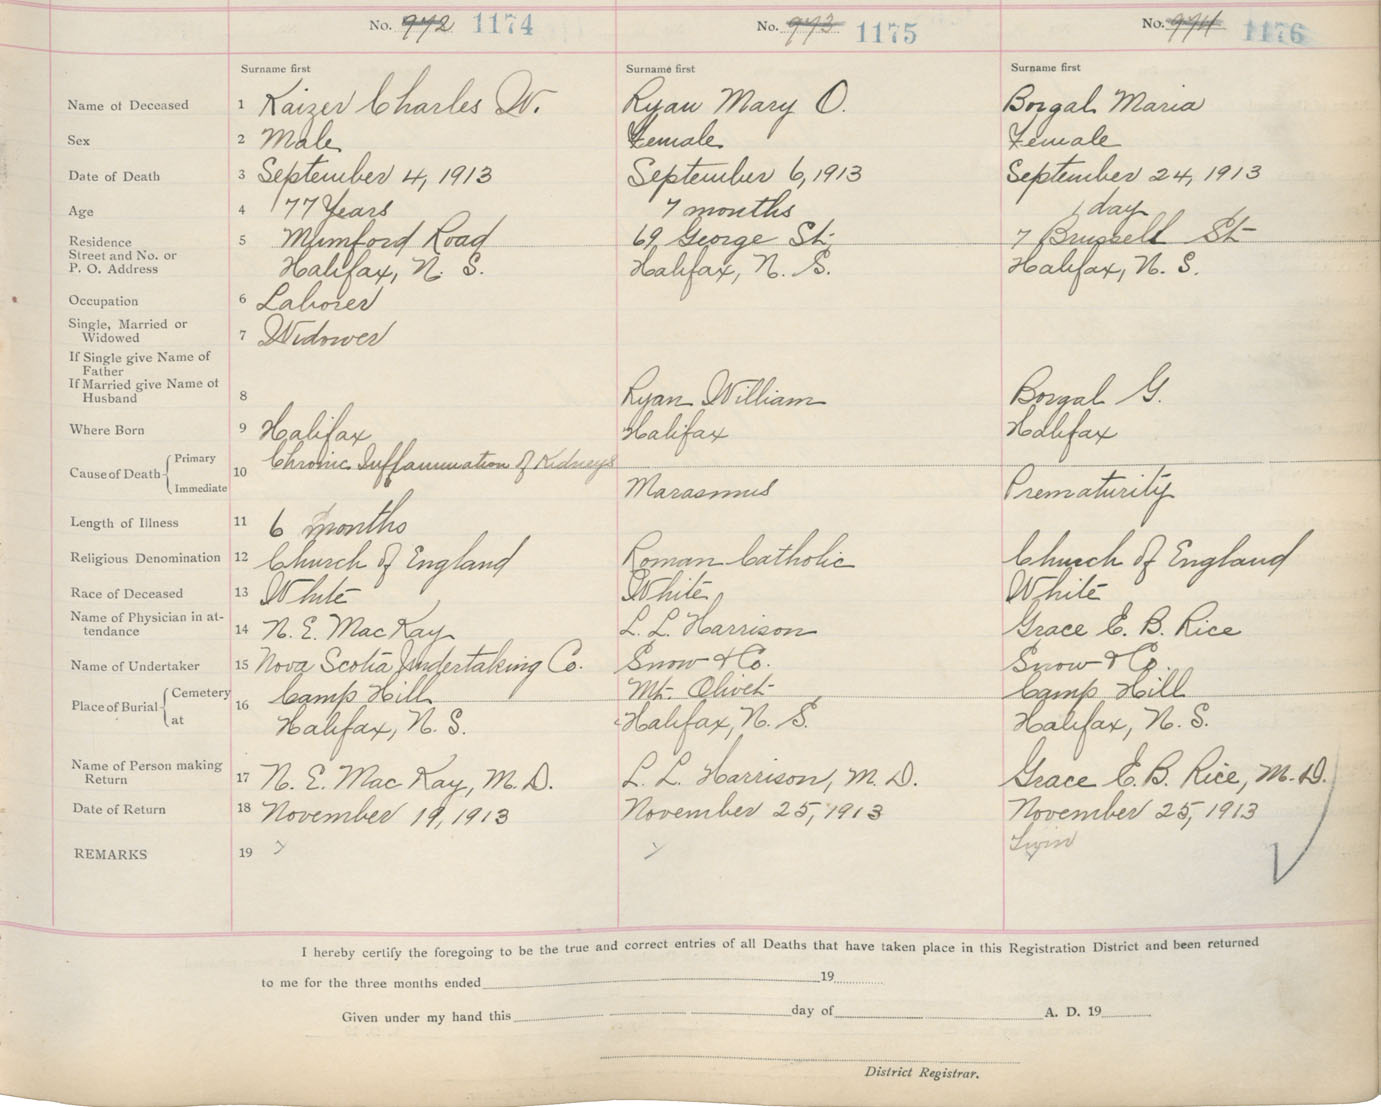 No. 972 1174 No. 973 1175 No. 974 1176
Surname first Surname first Surname first
Name of Deceased 1 Kaizer Charles W. Ryan Mary O. Borgal Maria
Sex 2 Male Female Female
Date of Death 3 September 4, 1913 September 6, 1913 September 24, 1913
Age 4 77 Years 7 months 1 day
Residence 5 Mumford Road 69 George St. 7 Brussell St
Street and No. or
P. O. Address Halifax, N. S. Halifax, N. S. Halifax, N. S.
Occupation 6 Laborer
Single, Married or
Widowed 7 Widower
If Single give Name of
Father
If Married give Name of
Husband 8 Ryan William Borgal G.
Where Born 9 Halifax Halifax Halifax
Cause of Death Primary 10 Chronic Inflammation of Kidneys
Immediate Marasmus Prematurity
Length of Illness 11 6 months
Religious Denomination 12 Church of England Roman Catholic Church of England
Race of Deceased 13 White White White
Name of Physician in at-
tendance 14 N. E. MacKay L. L. Harrison Grace E. B. Rice
Name of Undertaker 15 Nova Scotia Undertaking Co. Snow & Co. Snow & Co.
Place of Burial Cemetery 16 Camp Hill Mt. Olivet Camp Hill
at Halifax, N. S. Halifax, N. S. Halifax, N. S.
Name of Person making
Return 17 N. E. MacKay, M.D. L. L. Harrison, M. D. Grace E. B. Rice, M. D.
Date of Return 18 November 19, 1913 November 25, 1913 November 25, 1913
REMARKS 19 Twin
I hereby certify the foregoing to be the true and correct entries of all Deaths that have taken place in this Registration District and been returned
to me for the three months ended 19
Given under my hand this day of A. D. 19
District Registrar.